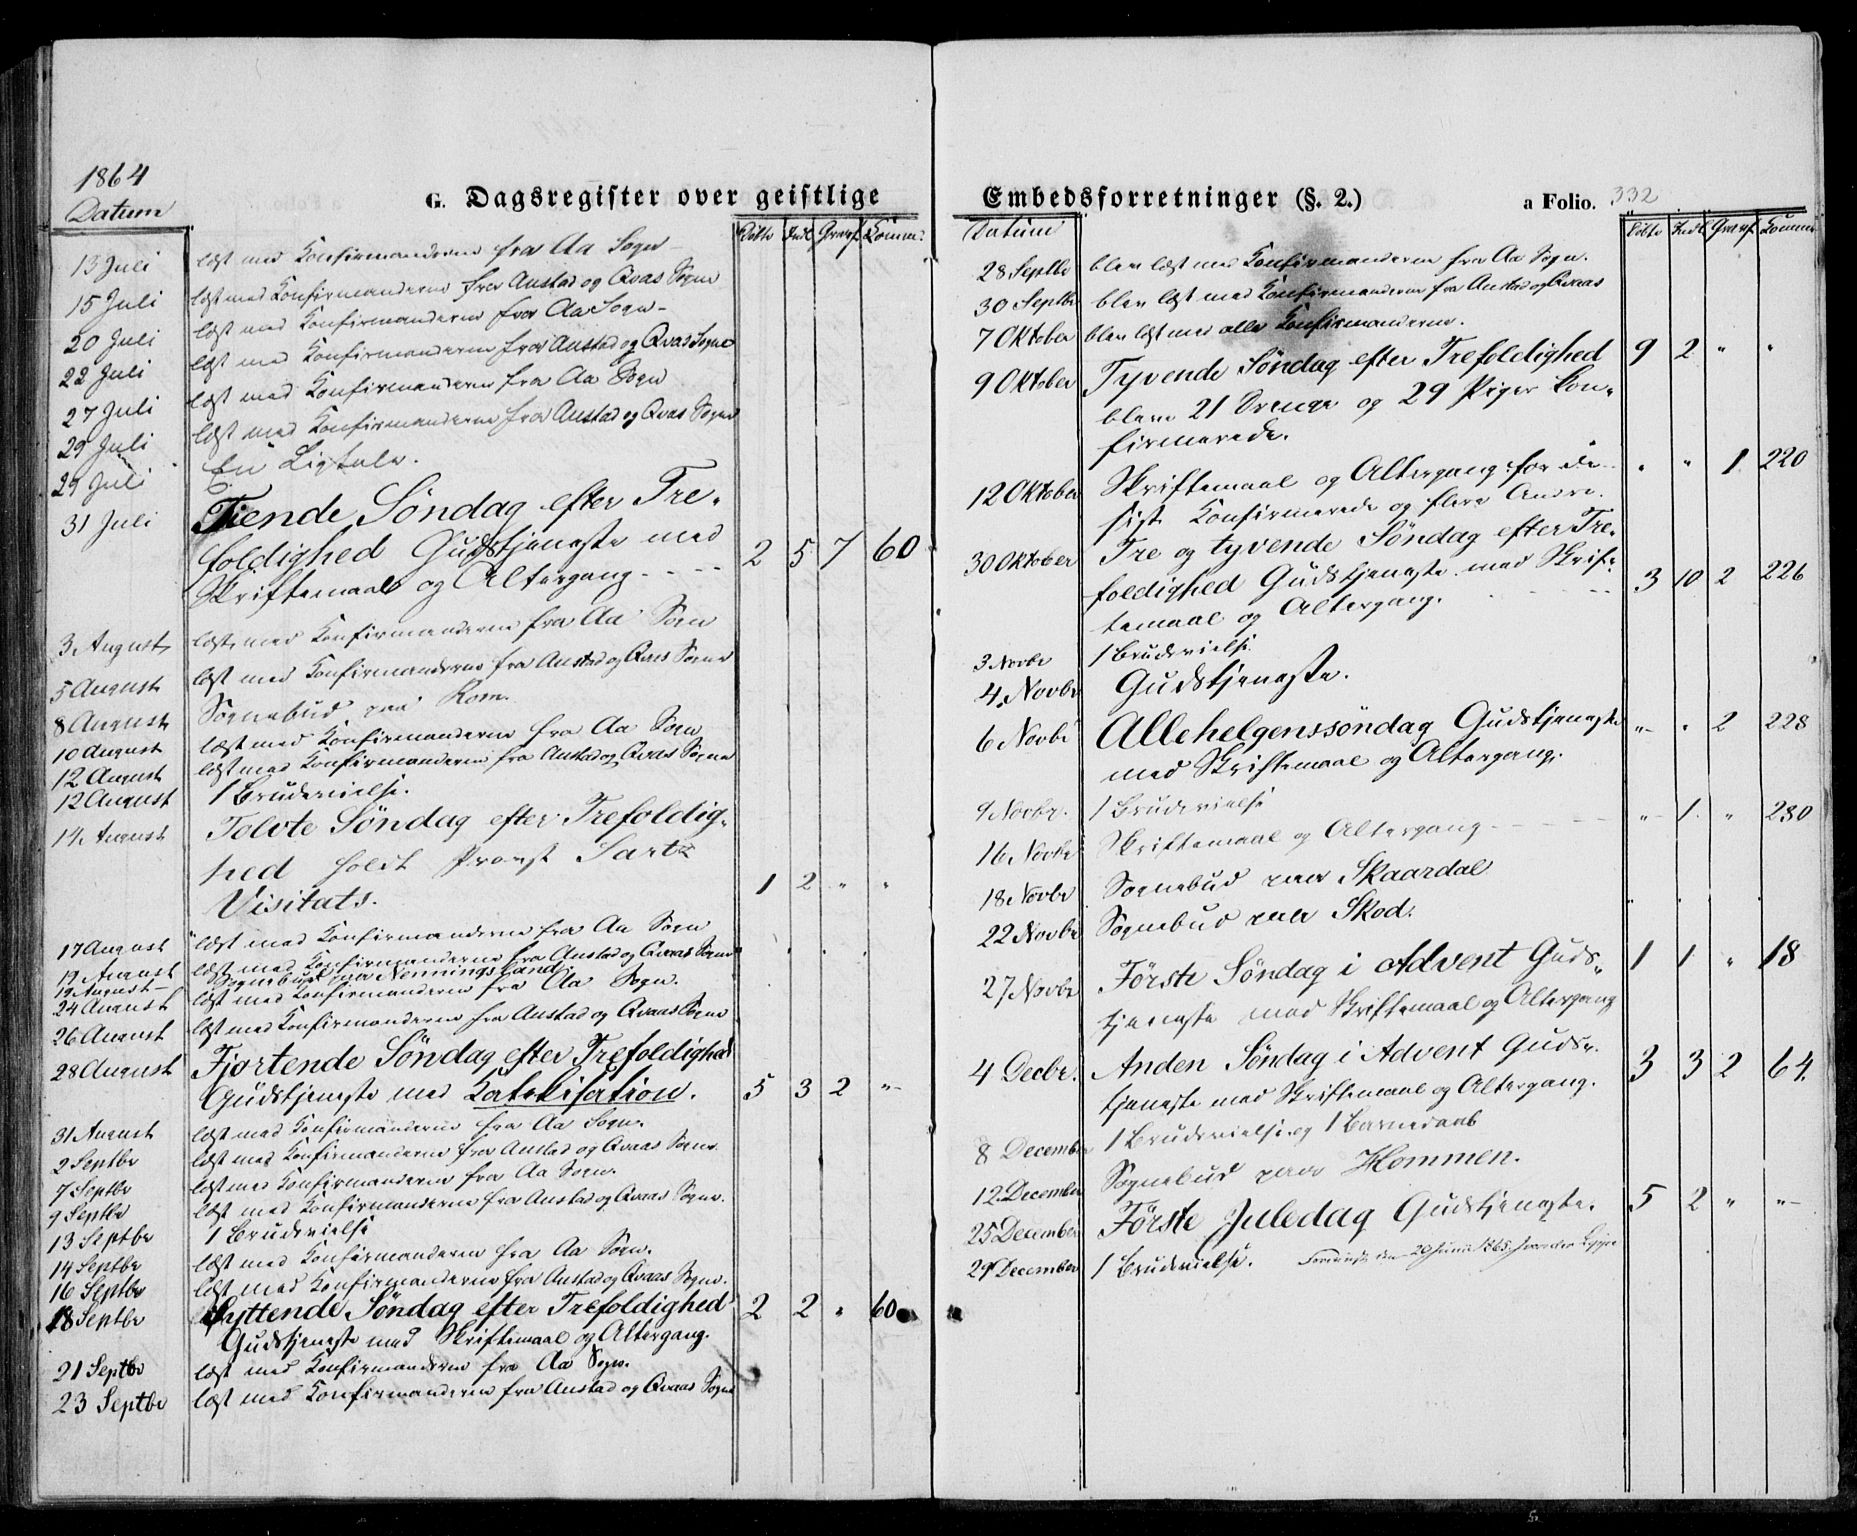 1864
G. Dagsregister over geistlige
Datum
Døbte Indl Gravf. Commu:
13 Juli læst med Konfirmanderne fra Aa Sogn
15 Juli læst med Konfirmanderne fra Austad og Qvas Sogne
20 Juli læst med Konfirmanderne fra Aa Sogn
22 Juli læst med Konfirmanderne fra Austad og Qvas Sogne
27 Juli læst med Konfirmanderne fra Aa Sogn
29 Juli læst med Konfirmanderne fra Austad og Qvas Sogne
29 Juli En Ligtale.
31 Juli Tiende Søndag efter Tre-
foldighed Gudstjeneste med 2 5 7 60
Skriftemaal og Altergang
3 August læst med Konfirmanderne fra Aa Sogn
5 August læst med Konfirmanderne fra Austad og Qvas Sogne
8 August Sognebud paa Rom.
10 August læst med Konfirmanderne fra Aa Sogn
12 August læst med Konfirmanderne fra Austad og Qvas Sogne
12 August 1 Brudevielse.
14 August Tolvte Søndag efter Trefoldig-
hed holdt Provst Sartz
Visitats. 1 2 " "
17 August læst med Konfirmanderne fra Aa Sogn
19 August læst med Konfirmanderne fra Austad og Qvaas Sogne
19 August Sognebud paa Nenningsland
24 August læst med Konfirmanderne fra Aa Sogn.
26 August læst med Konfirmanderne fra Austad og Qvaas Sogne
28 August Fjortende Søndag efter Trefoldighed
Gudstjeneste med Katekisation. 5 3 2 "
31 August læst med Konfirmanderne fra Aa Sogn.
2 Septbr læst med Konfirmanderne fra Austad og Qvaas Sogne.
7 Septbr læst med Konfirmanderne fra Aa Sogn.
9 Septbr læst med Konfirmanderne fra Austad og Qvaas Sogne.
13 Septbr 1 Brudevielse
14 Septbr læst med Konfirmanderne fra Aa Sogn.
16 Septbr læst med Konfirmanderne fra Austad og Qvaas Sogne.
18 Septbr Syttende Søndag efter Trefoldighed 2 2 " 60
Gudstjeneste med Skriftemaal og Altergang.
21 Septbr læst med Konfirmanderne fra Aa Sogn.
23 Septbr læst med Konfirmanderne fra Austad og Qvaas Sogne
Embedsforretninger (§. 2.)
a Folio. 332
Datum
Døbte Indl Gravf Commu
28 Septbr blev læst med Konfirmanderne fra Aa Sogn.
30 Septbr blev læst med Konfirmanderne fra Austad og Qvaas
7 Oktober blev læst med alle Konfirmanderne.
9 Oktober Tyvende Søndag efter Trefoldighed 9 2 " "
bleve 21 Drenge og 29 Piger kon-
firmerede.
12 Oktober Skriftemaal og Altergang for de " " 1 220
sidst Konfirmerede og flere Andre.
30 Oktober Tre og tyvende Søndag efter Tre-
foldighed Gudstjeneste med Skrif- 3 10 2 226
temaal og Altergang.
3 Novbr 1 Brudevielse.
4 Novbr Gudstjeneste.
6 Novbr Allehelgenssøndag Gudstjeneste " " 2 228
med Skriftemaal og Altergang.
9 Novbr. 1 Brudevielse
16 Novbr Skriftemaal og Altergang " 1 " 230
18 Novbr Sognebud paa Skaardal
22 Novbr Sognebud paa Skod.
27 Novbr Første Søndag i Advent Guds- 1 1 " 18
tjeneste med Skriftemaal og Altergang
4 Decbr. Anden Søndag i Advent Guds- 3 3 2 64.
tjeneste med Skriftemaal og Altergang.
8 December 1 Brudevielse og 1 Barnedaab
12 December Sognebud paa Hommen.
25 December Første Juledag Gudstjeneste. 5 2 " "
29 December 1 Brudevielse. den 20 Juni 1865.